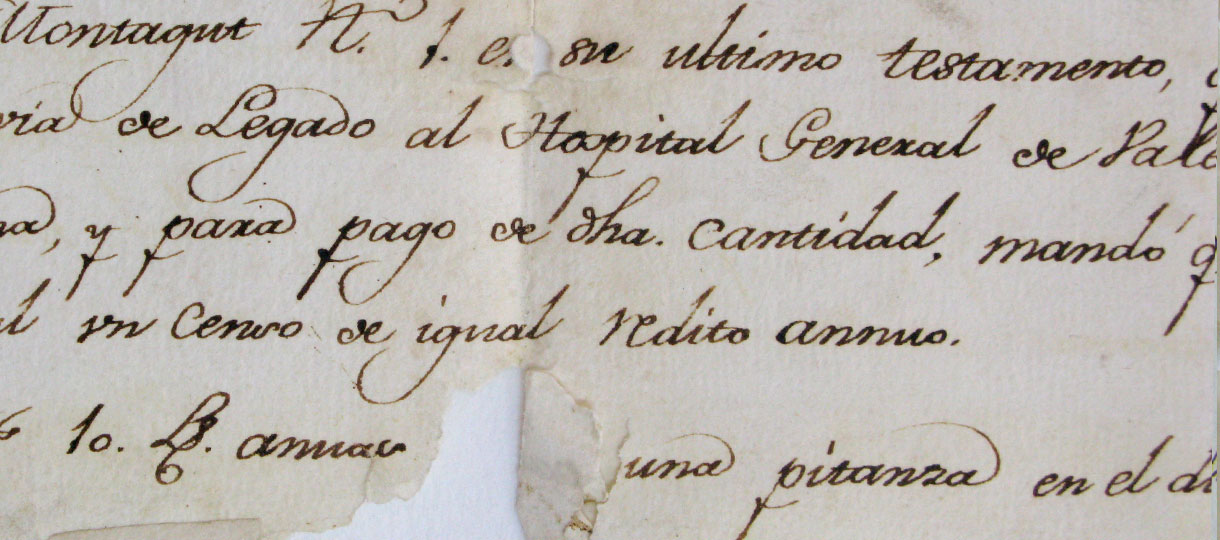 Montagut N. 1. e. su ultimo testamento,
de Legado al Hospital General de Vale
y para pago de dha. Cantidad, mandó q
un Censo de igual redito annuo.
10. L. anuas una pitanza en el di